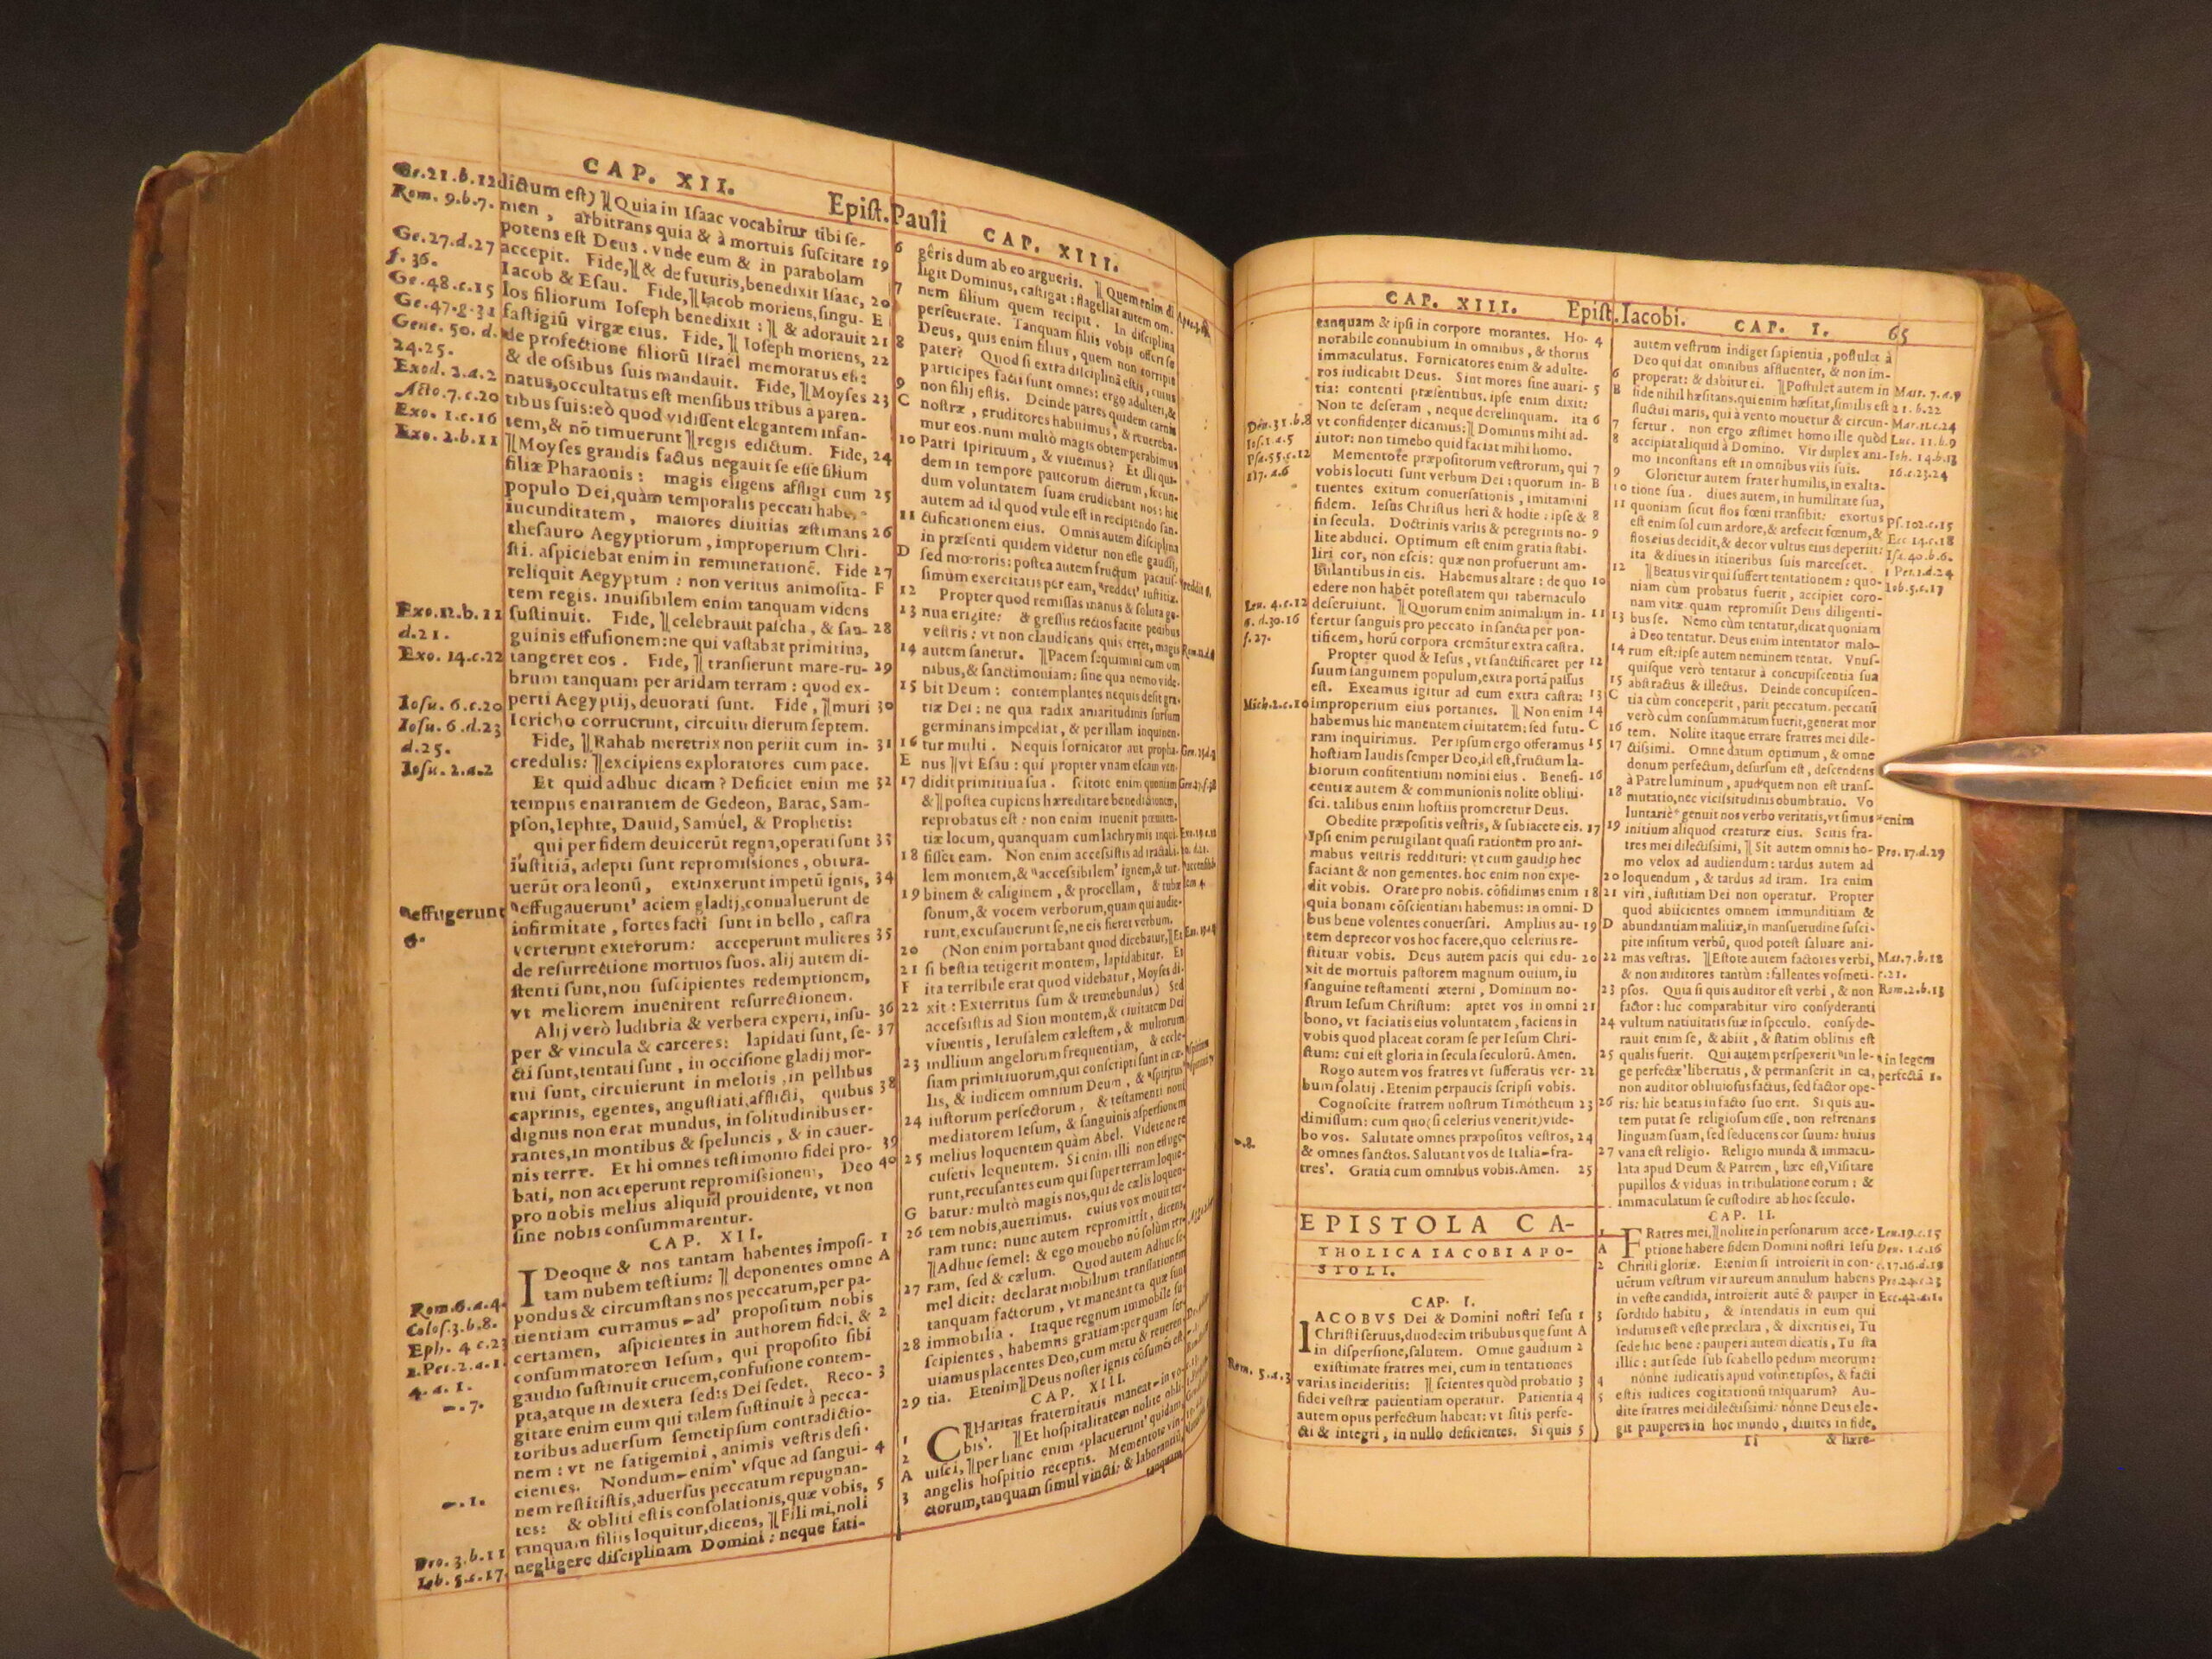 CAP. XII.
Epist. Pauli
CAP. XIII.
Ge.21.b.12
Rom. 9.b.7.
Ge.27.d.27
f.36.
Ge.48.c.15
Ge.47.g.31
Gene. 50. d.
24.25.
Exod. 2.a.2
Acto.7.c.20
Exo. 1.c.16
Exo. 2.b.11
Exo.12.b.11
d.21.
Exo. 14.c.22
Iosu. 6.c.20
Iosu. 6.d.23
d.25.
Iosu. 2.a.2
effugerunt
Rom.6.a.4.
Colos.3.b.8.
Eph. 4 c.23
1.Pet.2.a.1.
4. a. 1.
–.7.
–.1.
Pro. 3.b.11
Iob. 5.c.17.
dictum est) ][Quia in Isaac vocabitur tibi se-
men, arbitrans quia & à mortuis suscitare 19
potens est Deus. vnde eum & in parabolam
accepit. Fide,][& de futuris,benedixit Isaac, 20
Iacob & Esau. Fide,][Iacob moriens,singu- E
los filiorum Ioseph benedixit :][ & adorauit 21
fastigiū virgæ eius. Fide,][ Ioseph moriens, 22
de profectione filiorū Israël memoratus est:
& de ossibus suis mandauit. Fide,][Moyses 23
natus,occultatus est mensibus tribus a paren-
tibus suis:eò quod vidissent elegantem infan-
tem,& nō timuerunt ][regis edictum. Fide, 24
][Moyses grandis factus negauit se esse filium
filiæ Pharaonis: magis eligens affligi cum 25
populo Dei,quàm temporalis peccati habe-
iucunditatem, maiores diuitias æstimans 26
thesauro Aegyptiorum, improperium Chri-
sti. aspiciebat enim in remunerationē. Fide 27
reliquit Aegyptum : non veritus animosita- F
tem regis. inuisibilem enim tanquam videns
sustinuit. Fide, ][celebrauit pascha, & san- 28
guinis effusionem:ne qui vastabat primitiua,
tangeret eos. Fide,][ transierunt mare-ru- 29
brum tanquam per aridam terram : quod ex-
perti Aegyptij, deuorati sunt. Fide, ][muri 30
Iericho corrucrunt, circuitu dierum septem.
Fide, ][Rahab meretrix non periit cum in- 31
credulis: ][excipiens exploratores cum pace.
Et quid adhuc dicam? Deficiet enim me 32
tempus enarrantem de Gedeon, Barac, Sam-
pson, Iephte, Dauid, Samuel, & Prophetis:
qui per fidem deuicerūt regna,operati sunt 33
iustitiā, adepti sunt repromissiones, obtura-
uerūt ora leonū, extinxerunt impetū ignis, 34
effugauerunt' aciem gladij,conualuerunt de
infirmitate, fortes facti sunt in bello, castra
verterunt exterorum: acceperunt mulieres 35
de resurrectione mortuos suos. alij autem di-
stenti sunt,non suscipientes redemptionem,
vt meliorem inuenirent resurrectionem.
Alij verò ludibria & verbera experti, insu- 36
per & vincula & carceres: lapidati sunt, se- 37
cti sunt,tentati sunt, in occisione gladij mor-
tui sunt, circuierunt in melotis, in pellibus
caprinis, egentes, angustiati,afflicti, quibus 38
dignus non erat mundus, in solitudinibus er-
rantes,in montibus & speluncis, & in cauer-
nis terræ. Et hi omnes testimonio fidei pro- 39
bati, non acceperunt repromissionem, Deo 40
pro nobis melius aliquid prouidente, vt non
sine nobis consummarentur.
CAP. XII.
IDeoque & nos tantam habentes imposi- 1
tam nubem testium: ][ deponentes omne A
pondus & circumstans nos peccatum,per pa-
tientiam curramus –ad' propositum nobis
certamen, aspicientes in authorem fidei, & 2
consummatorem Iesum, qui proposito sibi
gaudio sustinuit crucem,confusione contem-
pta,atque in dextera sedis Dei sedet. Reco- 3
gitate enim eum qui talem sustinuit à pecca-
toribus aduersum semetipsum contradictio-
nem : vt ne fatigemini, animis vestris defi-
cientes. Nondum –enim' vsque ad sangui- 4
nem restitistis,aduersus peccatum repugnan-
tes: & obliti estis consolationis,quæ vobis, 5
tanquam filiis loquitur,dicens, ][Fili mi,noli
negligere disciplinam Domini : neque fati-
6 gêris dum ab eo argueris. ][ Quem enim di
ligit Dominus, castigat : flagellat autem om-
7 nem filium quem recipit. In disciplina
perseuerate. Tanquam filiis vobis offert se
8 Deus, quis enim filius, quem non corripit
pater? Quod si extra disciplinā estis, cuius
participes facti sunt omnes: ergo adulteri,&
9 non filij estis. Deinde patres quidem carnis
C nostræ, eruditores habuimus, & reuereba-
mur eos.num multò magis obtemperabimus
10 Patri spirituum, & viuemus? Et illi qui-
dem in tempore paucorum dierum, secun-
dum voluntatem suam erudiebant nos: hic
autem ad id quod vtile est in recipiendo san-
11 ctificationem eius. Omnis autem disciplina
in præsenti quidem videtur non esse gaudij,
D sed mœroris: postea autem fructum pacatis-
simum exercitatis per eam, reddet' iustitiæ.
12 Propter quod remissas manus & soluta ge-
13 nua erigite: & gressus rectos facite pedibus
vestris : vt non claudicans quis erret, magis
14 autem sanetur. ][Pacem sequimini cum om
nibus,& sanctimoniam: sine qua nemo vide-
15 bit Deum : contemplantes nequis desit gra-
tiæ Dei : ne qua radix amaritudinis sursum
germinans impediat, & per illam inquinen-
16 tur multi. Nequis fornicator aut propha-
E nus ][vt Esau : qui propter vnam escam ven-
17 didit primitiua sua. scitote enim quoniam
& ][postea cupiens hæreditare benedictionem,
reprobatus est : non enim inuenit pœniten-
tiæ locum, quanquam cum lachrymis inqui-
18 sisset eam. Non enim accessistis ad tractabi-
lem montem,& accessibilem' ignem,& tur-
19 binem & caliginem, & procellam, & tubæ
sonum,& vocem verborum,quam qui audie-
runt,excusauerunt se,ne eis fieret verbum.
20 (Non enim portabant quod dicebatur,][Et
21 si bestia tetigerit montem, lapidabitur. Et
F ita terribile erat quod videbatur, Moyses di-
22 xit : Exterritus sum & tremebundus) Sed
accessistis ad Sion montem,& ciuitatem Dei
viuentis, Ierusalem cælestem, & multorum
23 millium angelorum frequentiam, & eccle-
siam primitiuorum,qui conscripti sunt in cæ-
lis, & iudicem omnium Deum, & spiritus'
24 iustorum perfectorum, & testamenti noui
mediatorem Iesum, & sanguinis aspersionem
25 melius loquentem quàm Abel. Videte ne re
cusetis loquentem. Si enim illi non effuge-
runt,recusantes eum qui super terram loque-
G batur: multò magis nos,qui de cælis loquen-
26 tem nobis,auertimus. cuius vox mouit ter-
ram tunc: nunc autem repromittit, dicens
][Adhuc semel: & ego mouebo nō solùm ter-
27 ram, sed & cælum. Quod autem Adhuc se-
mel dicit: declarat mobilium translationem
tanquam factorum, vt maneant ea quæ sunt
28 immobilia. Itaque regnum immobile su-
scipientes, habemus gratiam:per quam ser-
uiamus placentes Deo,cum metu & reueren-
29 tia. Etenim][Deus noster ignis cōsumēs est
CAP. XIII.
1 C][Haritas fraternitatis maneat –in vo-
2 bis'. ][Et hospitalitatem nolite obli-
A uisci, ][per hanc enim placuerunt' quidam
3 angelis hospitio receptis. Mementote vin-
ctorum,tanquam simul vincti: & laborantiū,
tanquam
reddit
CAP. XIII.
Epist. Iacobi.
CAP. I.
65
Deu. 31.b.8
Ios.1.a.5
Psa.55.c.12
117.a.6
Leu. 4.c.12
6. d.30.16
f.27.
Mich.2.c.10
–.8.
Rom. 5.a.3
tanquam & ipsi in corpore morantes. Ho- 4
norabile connubium in omnibus, & thorus
immaculatus. Fornicatores enim & adulte-
ros iudicabit Deus. Sint mores sine auari- 5
tia: contenti præsentibus. ipse enim dixit:
Non te deseram, neque derelinquam. ita 6
vt confidenter dicamus:][ Dominus mihi ad-
iutor: non timebo quid faciat mihi homo.
Mementote præpositorum vestrorum, qui 7
vobis locuti sunt verbum Dei : quorum in- B
tuentes exitum conuersationis, imitamini
fidem. Iesus Christus heri & hodie : ipse & 8
in secula. Doctrinis variis & peregrinis no- 9
lite abduci. Optimum est enim gratia stabi-
liri cor, non escis: quæ non profuerunt am-
bulantibus in eis. Habemus altare : de quo 10
edere non habēt potestatem qui tabernaculo
deseruiunt. ][Quorum enim animalium in- 11
fertur sanguis pro peccato in sancta per pon-
tificem, horū corpora cremātur extra castra.
Propter quod & Iesus, vt sanctificaret per 12
suum sanguinem populum,extra portā passus
est. Exeamus igitur ad eum extra castra: 13
improperium eius portantes. ][ Non enim 14
habemus hic manentem ciuitatem: sed futu- C
ram inquirimus. Per ipsum ergo offeramus 15
hostiam laudis semper Deo,id est,fructum la-
biorum confitentium nomini eius. Benefi- 16
centiæ autem & communionis nolite obliui-
sci. talibus enim hostiis promeretur Deus.
Obedite præpositis vestris, & subiacete eis. 17
Ipsi enim peruigilant quasi rationem pro ani-
mabus vestris reddituri: vt cum gaudio hoc
faciant & non gementes. hoc enim non expe-
dit vobis. Orate pro nobis. cōfidimus enim 18
quia bonam cōscientiam habemus: in omni- D
bus bene volentes conuersari. Amplius au- 19
tem deprecor vos hoc facere,quo celerius re-
stituar vobis. Deus autem pacis qui edu- 20
xit de mortuis pastorem magnum ouium, in
sanguine testamenti æterni, Dominum no-
strum Iesum Christum: aptet vos in omni 21
bono, vt faciatis eius voluntatem, faciens in
vobis quod placeat coram se per Iesum Chri-
stum: cui est gloria in secula seculorū. Amen.
Rogo autem vos fratres vt sufferatis ver- 22
bum solatij. Etenim perpaucis scripsi vobis.
Cognoscite fratrem nostrum Timotheum 23
dimissum: cum quo(si celerius venerit)vide-
bo vos. Salutate omnes præpositos vestros, 24
& omnes sanctos. Salutant vos de Italia –fra-
tres'. Gratia cum omnibus vobis.Amen. 25
EPISTOLA CA-
THOLICA IACOBI APO-
STOLI.
CAP. I.
IACOBVS Dei & Domini nostri Iesu 1
Christi seruus,duodecim tribubus quę sunt A
in dispersione,salutem. Omne gaudium 2
existimate fratres mei, cum in tentationes
varias incideritis: ][ scientes quòd probatio 3
fidei vestræ patientiam operatur. Patientia 4
autem opus perfectum habeat: vt sitis perfe-
cti & integri, in nullo deficientes. Si quis 5
autem vestrum indiget sapientia, postulet à
Deo qui dat omnibus affluenter, & non im-
6 properat: & dabitur ei. ][Postulet autem in
B fide nihil hæsitans.qui enim hæsitat,similis est
fluctui maris, qui à vento mouetur & circun-
7 fertur. non ergo æstimet homo ille quòd
8 accipiat aliquid à Domino. Vir duplex ani-
mo inconstans est in omnibus viis suis.
9 Glorietur autem frater humilis,in exalta-
10 tione sua. diues autem, in humilitate sua,
11 quoniam sicut flos fœni transibit: exortus
est enim sol cum ardore,& arefecit fœnum,&
flos eius decidit,& decor vultus eius deperiit:
ita & diues in itineribus suis marcescet.
12 ][Beatus vir qui suffert tentationem : quo-
niam cùm probatus fuerit, accipiet coro-
nam vitæ quam repromisit Deus diligenti-
13 bus se. Nemo cùm tentatur,dicat quoniam
à Deo tentatur. Deus enim intentator malo-
14 rum est:ipse autem neminem tentat. Vnus-
quisque verò tentatur à concupiscentia sua
15 abstractus & illectus. Deinde concupiscen-
C tia cùm conceperit, parit peccatum. peccatū
verò cùm consummatum fuerit,generat mor
16 tem. Nolite itaque errare fratres mei dile-
17 ctissimi. Omne datum optimum, & omne
donum perfectum, desursum est, descendens
à Patre luminum, apud quem non est trans-
18 mutatio,nec vicissitudinis obumbratio. Vo
luntariè genuit nos verbo veritatis,vt simus
19 initium aliquod creaturæ eius. Scitis fra-
tres mei dilectissimi, ][ Sit autem omnis ho-
mo velox ad audiendum: tardus autem ad
20 loquendum, & tardus ad iram. Ira enim
21 viri, iustitiam Dei non operatur. Propter
quod abiicientes omnem immunditiam &
D abundantiam malitiæ,in mansuetudine susci-
pite insitum verbū, quod potest saluare ani-
22 mas vestras. ][Estote autem factores verbi,
& non auditores tantùm : fallentes vosmeti-
23 psos. Quia si quis auditor est verbi, & non
factor : hic comparabitur viro consyderanti
24 vultum natiuitatis suæ in speculo. consyde-
rauit enim se, & abiit, & statim oblitus est
25 qualis fuerit. Qui autem perspexerit in le-
ge perfectæ' libertatis, & permanserit in ea,
non auditor obliuiosus factus, sed factor ope-
26 ris: hic beatus in facto suo erit. Si quis au-
tem putat se religiosum esse, non refrenans
linguam suam, sed seducens cor suum: huius
27 vana est religio. Religio munda & immacu-
lata apud Deum & Patrem, hæc est,Visitare
pupillos & viduas in tribulatione eorum : &
immaculatum se custodire ab hoc seculo.
CAP. II.
1 FRatres mei,][nolite in personarum acce-
A ptione habere fidem Domini nostri Iesu
2 Christi gloriæ. Etenim si introierit in con-
uētum vestrum vir aureum annulum habens
in veste candida, introierit autē & pauper in
3 sordido habitu, & intendatis in eum qui
indutus est veste præclara, & dixeritis ei, Tu
sede hîc bene : pauperi autem dicatis, Tu sta
illic : aut sede sub scabello pedum meorum:
4 nónne iudicatis apud vosmetipsos, & facti
5 estis iudices cogitationū iniquarum? Au-
dite fratres mei dilectissimi: nónne Deus ele-
git pauperes in hoc mundo, diuites in fide,
Ii
& hære-
Mar. 7.a.9
21.b.22
Mar.11.c.24
Luc. 11.b.9
Ioh. 14.b.13
16.c.23.24
Ps. 102.c.15
Ecc 14.c.18
Isa. 40.b.6.
1 Pet.1.d.24
Iob.5.c.17
enim
Pro. 17.d.29
Mat.7.b.12
c.21.
Rom.2.b.13
in legem
perfectā
Leu.19.c.15
Deu. 1.c.16
c.17.16.d.19
Pro.24.c.23
Ecc.42.a.1.